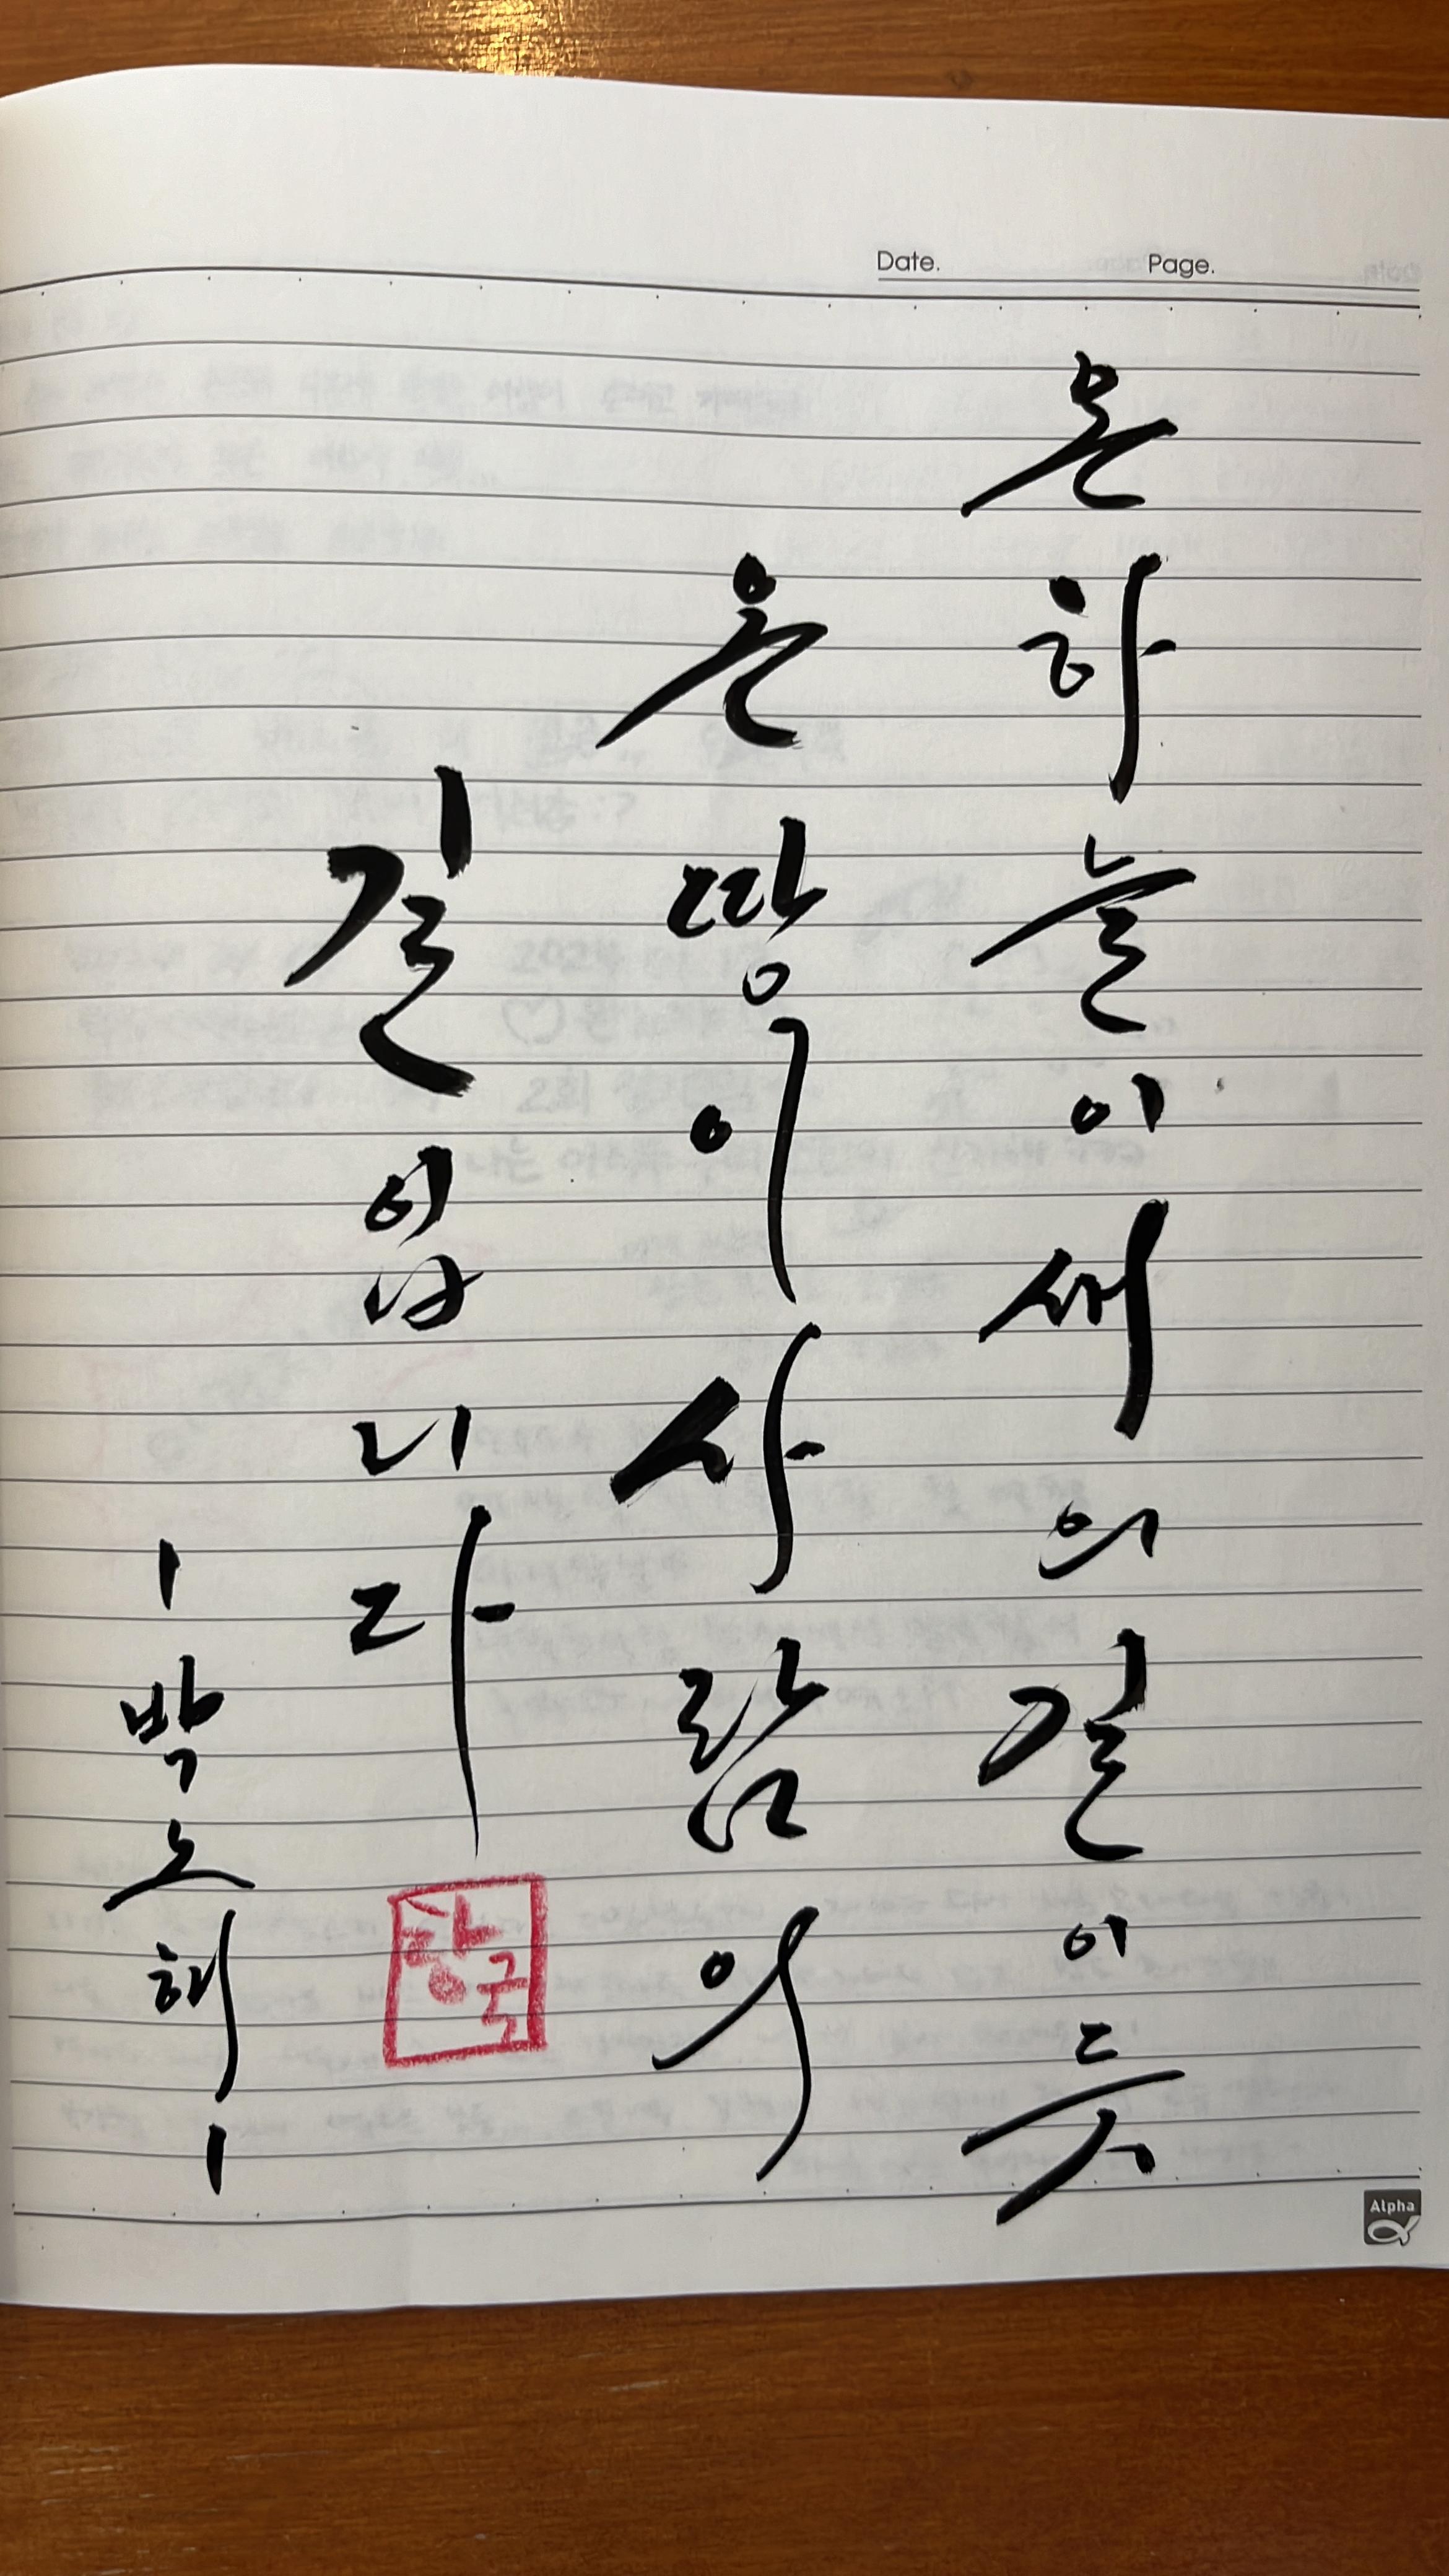 Date. Page.
온 하늘이 새의 길이듯
온 땅이 사람의
길입니다
- 박노해 -
Alpha